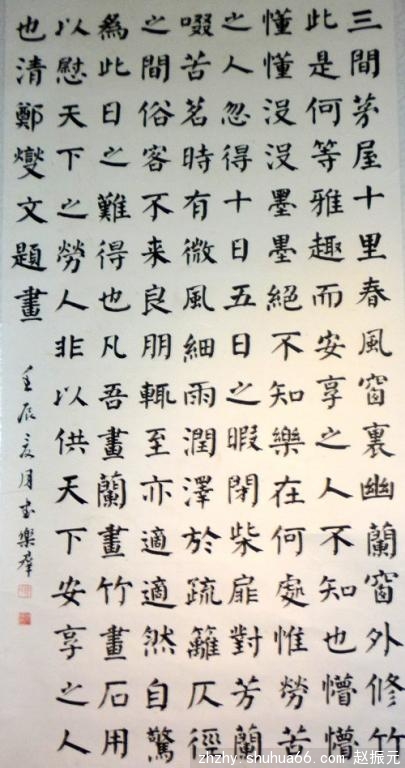 三間茅屋十里春風窗裏幽蘭窗外修竹
此是何等雅趣而安享之人不知也懵懵
懂懂没没墨墨絕不知樂在何處惟勞苦
之人忽得十日五日之暇閉柴扉對芳蘭
啜苦茗時有微風細雨潤澤於疏籬仄徑
之間俗客不来良朋輒至亦適適然自驚
爲此日之難得也凡吾畫蘭畫竹畫石用
以慰天下之勞人非以供天下安享之人
也清鄭燮文題畫
壬辰夏月樂群
zhzhy.shuhua66.com 赵振元